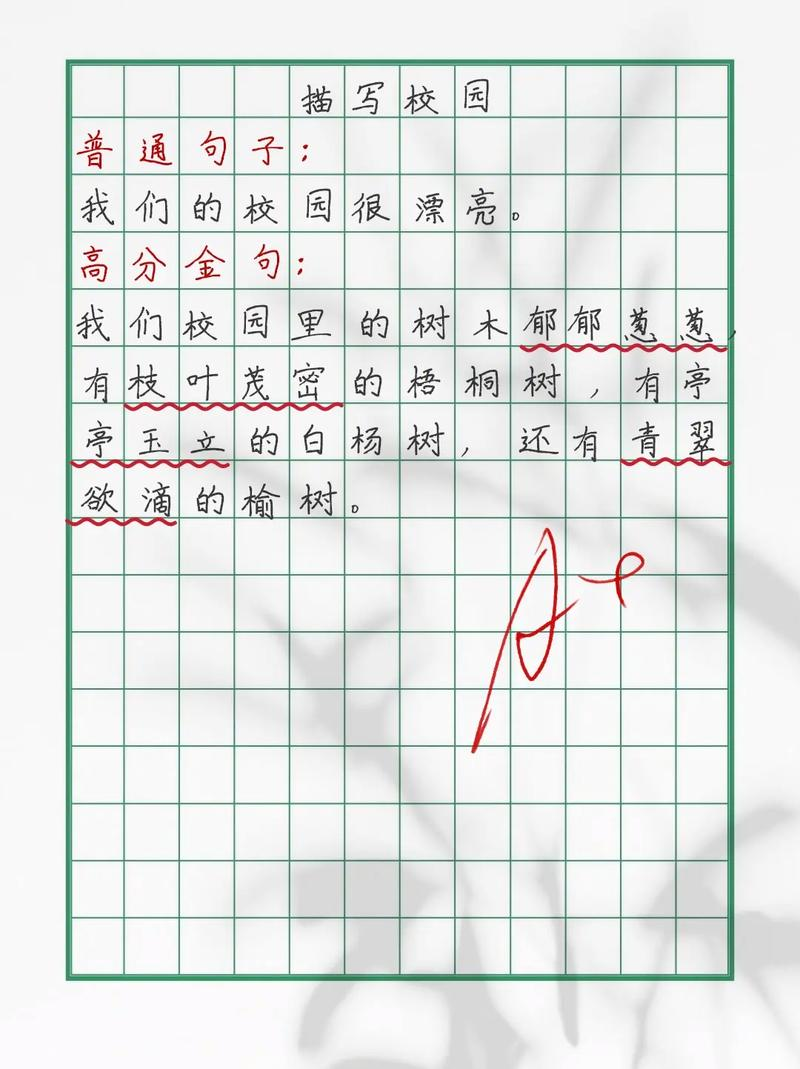 描写校园
普通句子：
我们的校园很漂亮。
高分金句：
我们校园里的树木郁郁葱葱，
有枝叶茂密的梧桐树，有亭
亭玉立的白杨树，还有青翠
欲滴的榆树。
A+